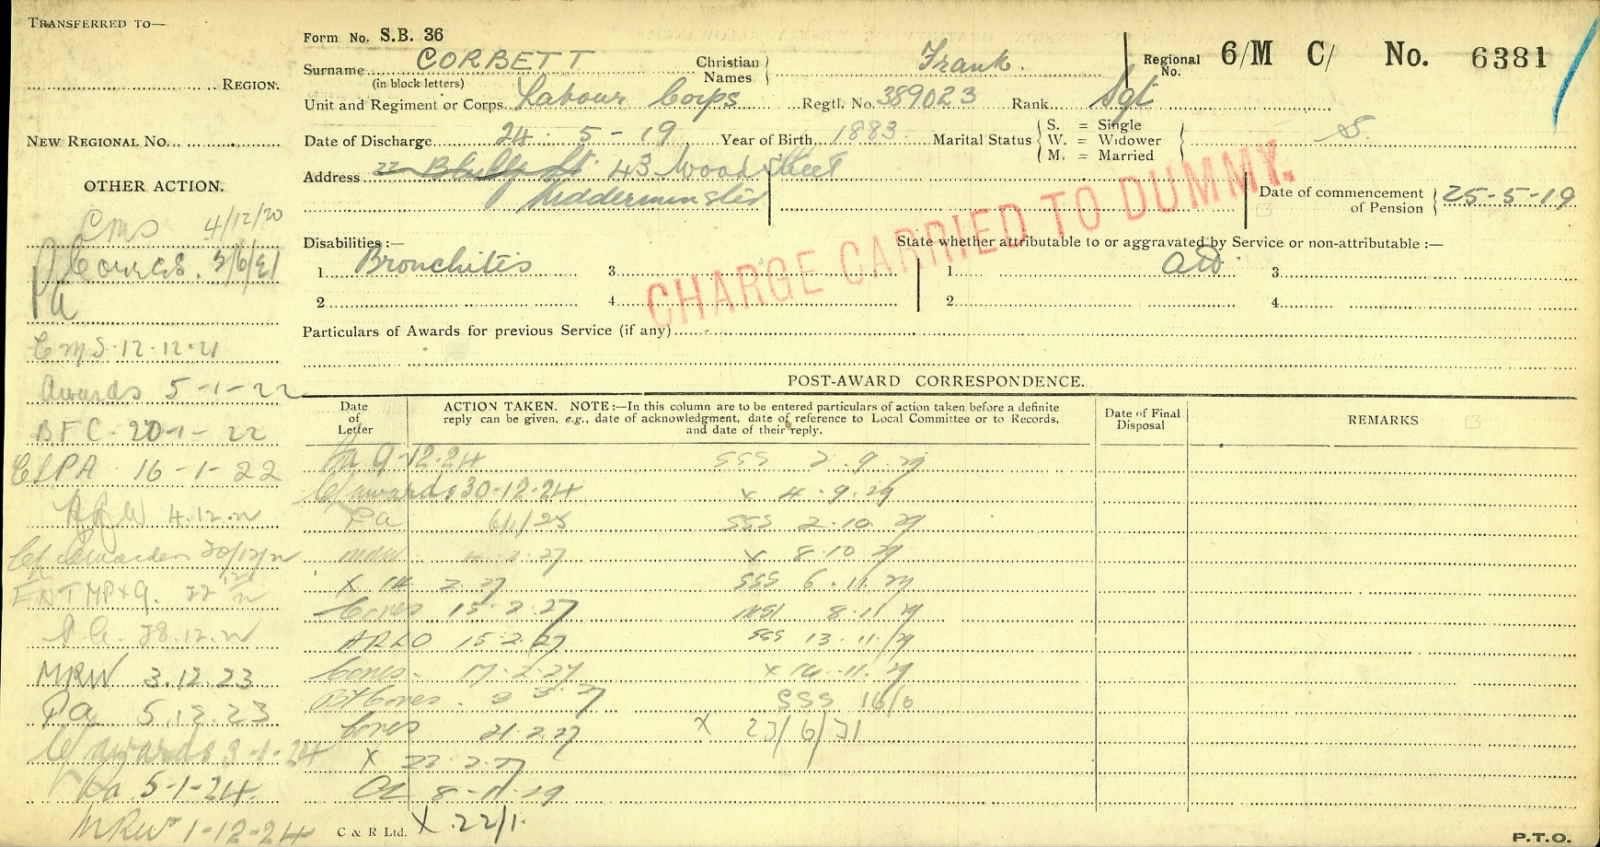 TRANSFERRED TO—
REGION.
NEW REGIONAL No.
OTHER ACTION.
CMS 4/12/20
5/6/21
Pa
CMS. 12.12.21
Awards 5-1-22
BFC. 20-1-22
16-1-22
4.12.22
20/12/22
28.12.22
MRW 3.12.23
Pa 5.12.23
Cf awards 3-1-24
Pa 5-1-24.
MRW 1-12-24
Form No. S.B. 36
Surname CORBETT Christian Names Frank. Regional No. 6/M C/ No. 6381
(in block letters)
Unit and Regiment or Corps Labour Corps Regtl. No. 389023 Rank Sgt
Date of Discharge 24. 5-19 Year of Birth 1883. Marital Status S. = Single W. = Widower M. = Married S.
Address 22 43 Wood Street
Kidderminster
Date of commencement of Pension 25-5-19
CHARGE CARRIED TO DUMMY.
Disabilities :— State whether attributable to or aggravated by Service or non-attributable :—
1 Bronchitis 3 1 3
2 4 2 4
Particulars of Awards for previous Service (if any)
POST-AWARD CORRESPONDENCE.
Date of Letter
ACTION TAKEN. NOTE:—In this column are to be entered particulars of action taken before a definite reply can be given, e.g., date of acknowledgment, date of reference to Local Committee or to Records, and date of their reply.
Date of Final Disposal
REMARKS
Pa 9-12-24 SSS 2.9.29
Cf awards 30-12-24 x 4.9.29
Pa 6/1/25 SSS 2.10.29
MRW 2.27 x 8.10.29
X 14 2.27 SSS 6.11.29
Cores 15.2.27 8.11.29
15.2.27 SSS 13.11.29
Cores. 17.2.27 x 14.11.29
Cores. 3.3.27 SSS 16/6
Cores 21.2.27 X 23/6/31
X 22.2.27
8-11-29
C & R Ltd. X 22/1.
P.T.O.